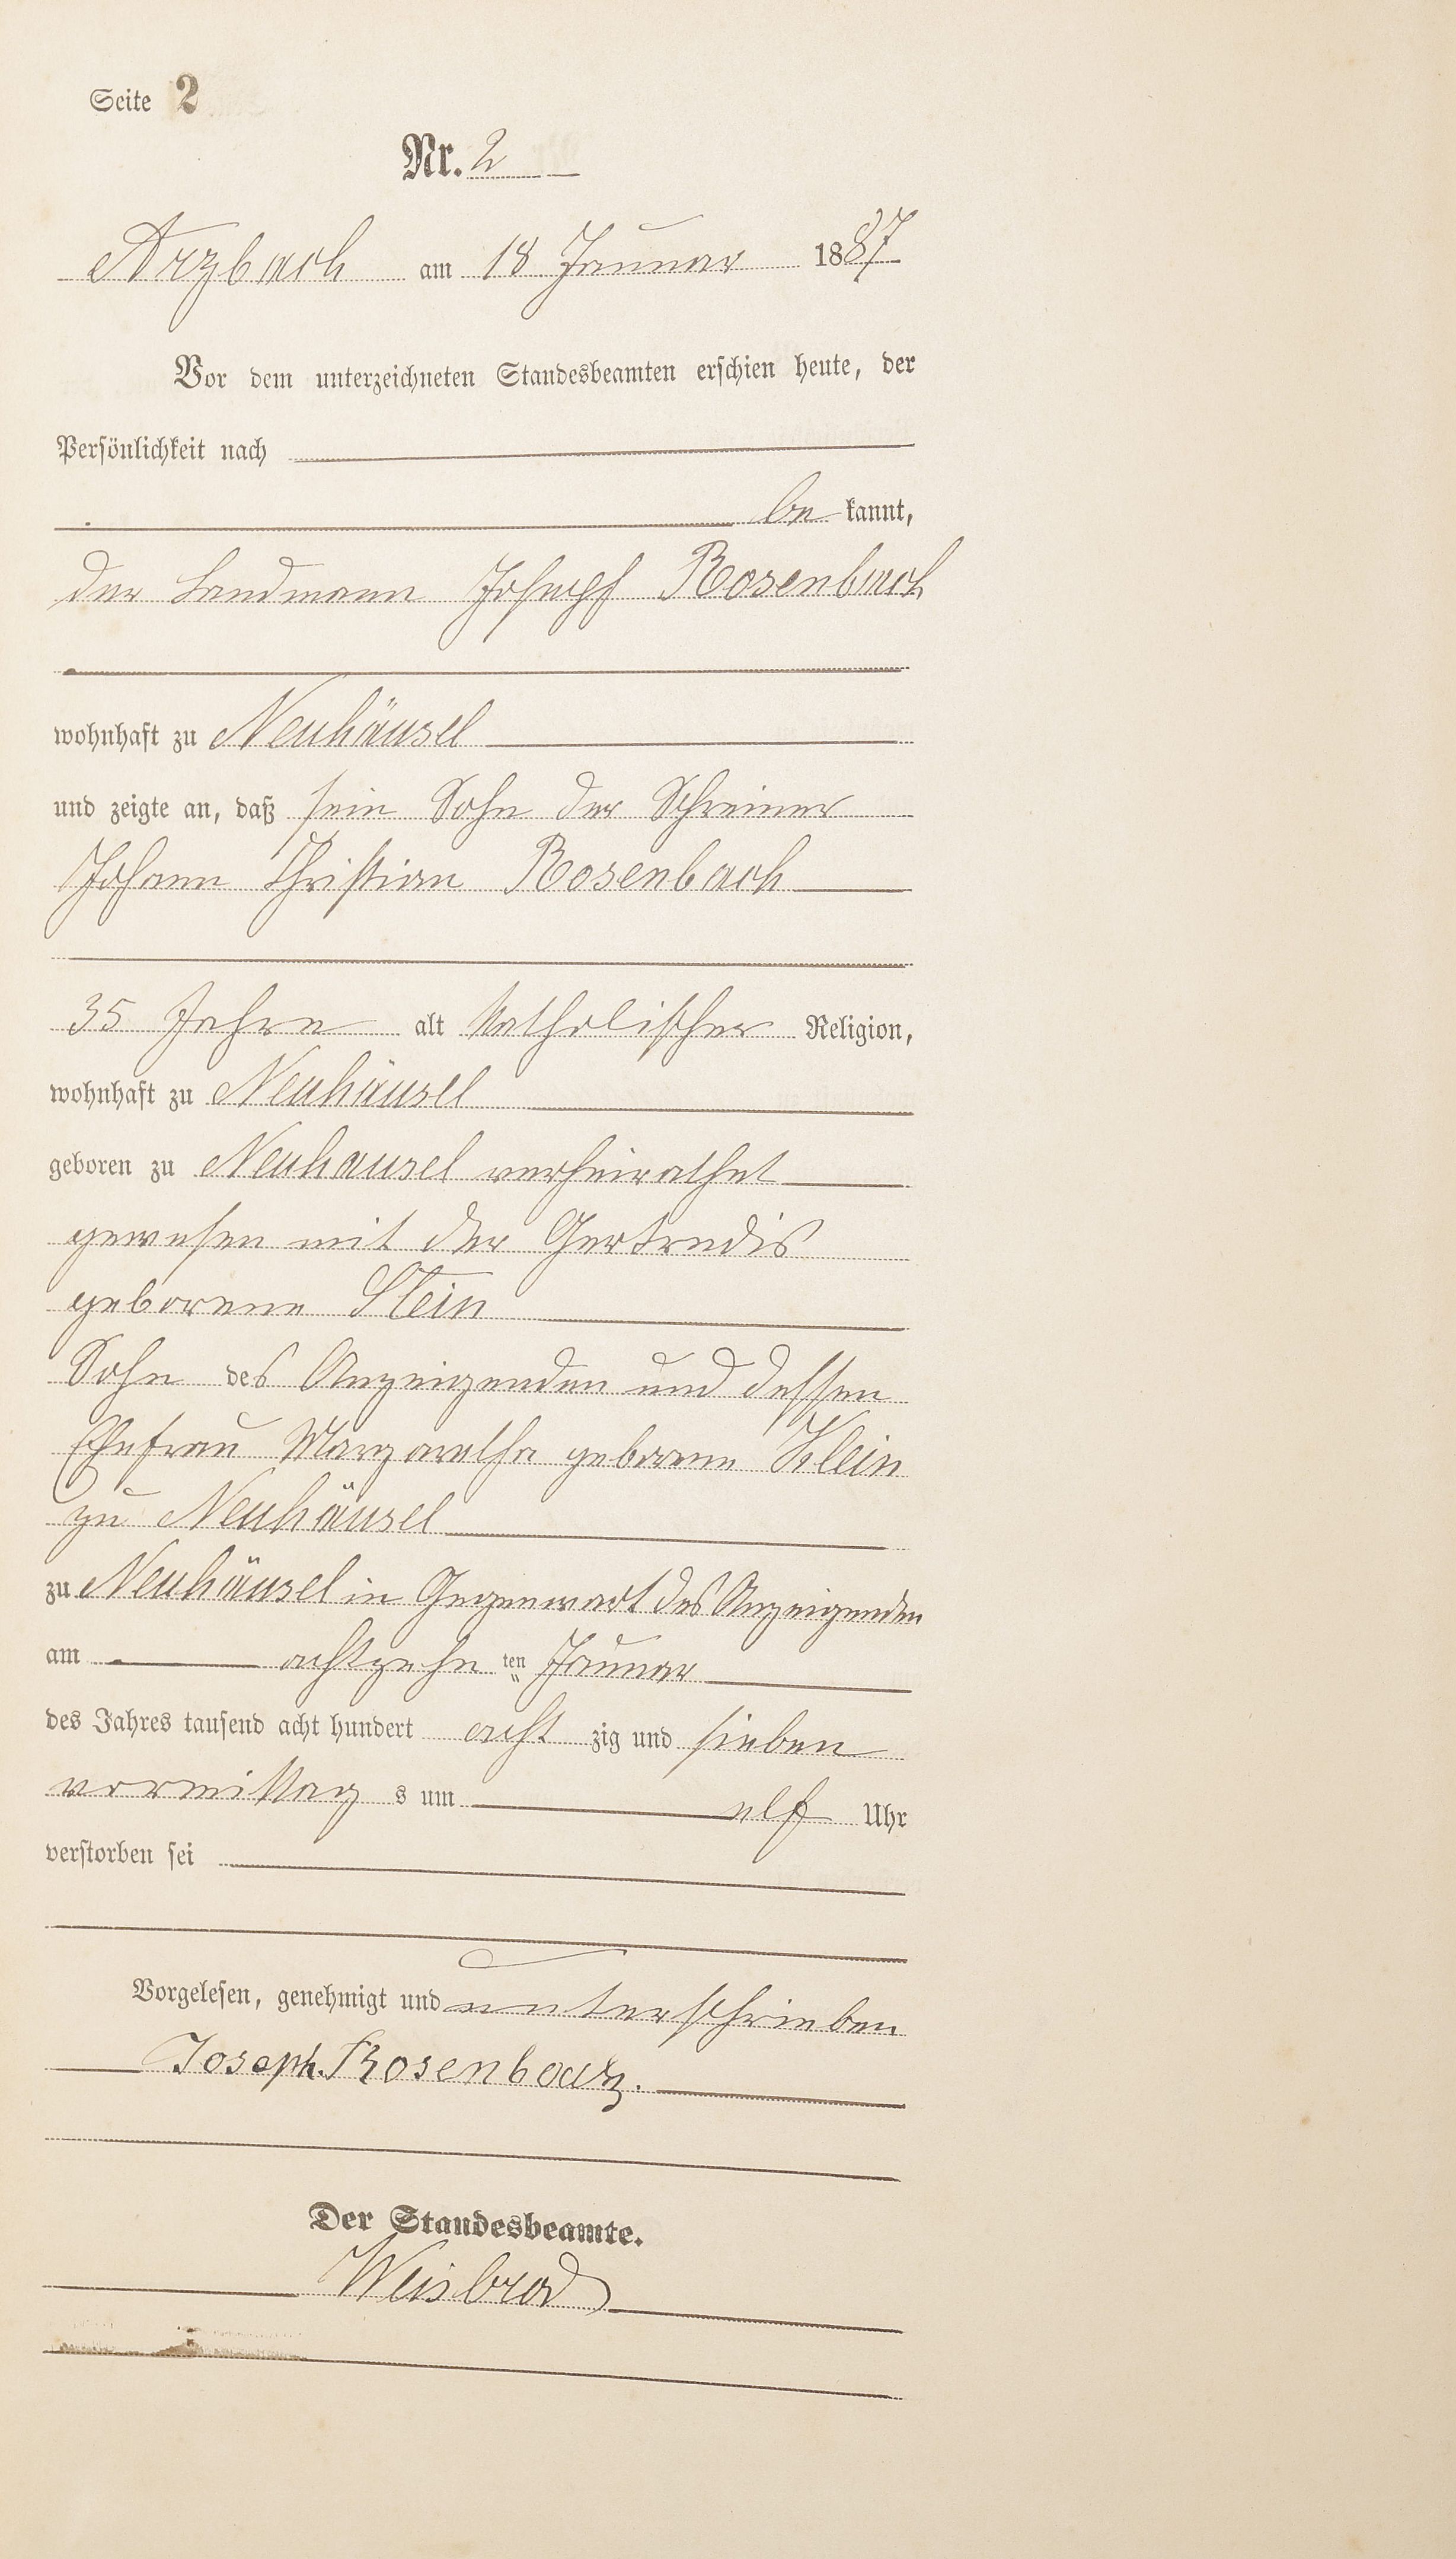 Seite 2
Nr. 2
Arzbach am 18 Januar 1887
Vor dem unterzeichneten Standesbeamten erschien heute, der
Persönlichkeit nach
be kannt,
der Landmann Joseph Rosenbach
wohnhaft zu Neuhäusel
und zeigte an, daß sein Sohn der Schreiner
Johann Christian Rosenbach
35 Jahre alt katholischer Religion,
wohnhaft zu Neuhäusel
geboren zu Neuhäusel verheirathet
gewesen mit der Gertrudis
geborene Stein
Sohn des Anzeigenden und dessen
Ehefrau Margaretha geborene Klein
zu Neuhäusel
zu Neuhäusel in Gegenwart des Anzeigenden
am achtzehn ten Januar
des Jahres tausend acht hundert acht zig und sieben
vormittag s um elf Uhr
verstorben sei
Vorgelesen, genehmigt und unterschrieben
Joseph Rosenbach.
Der Standesbeamte.
Weisbrod